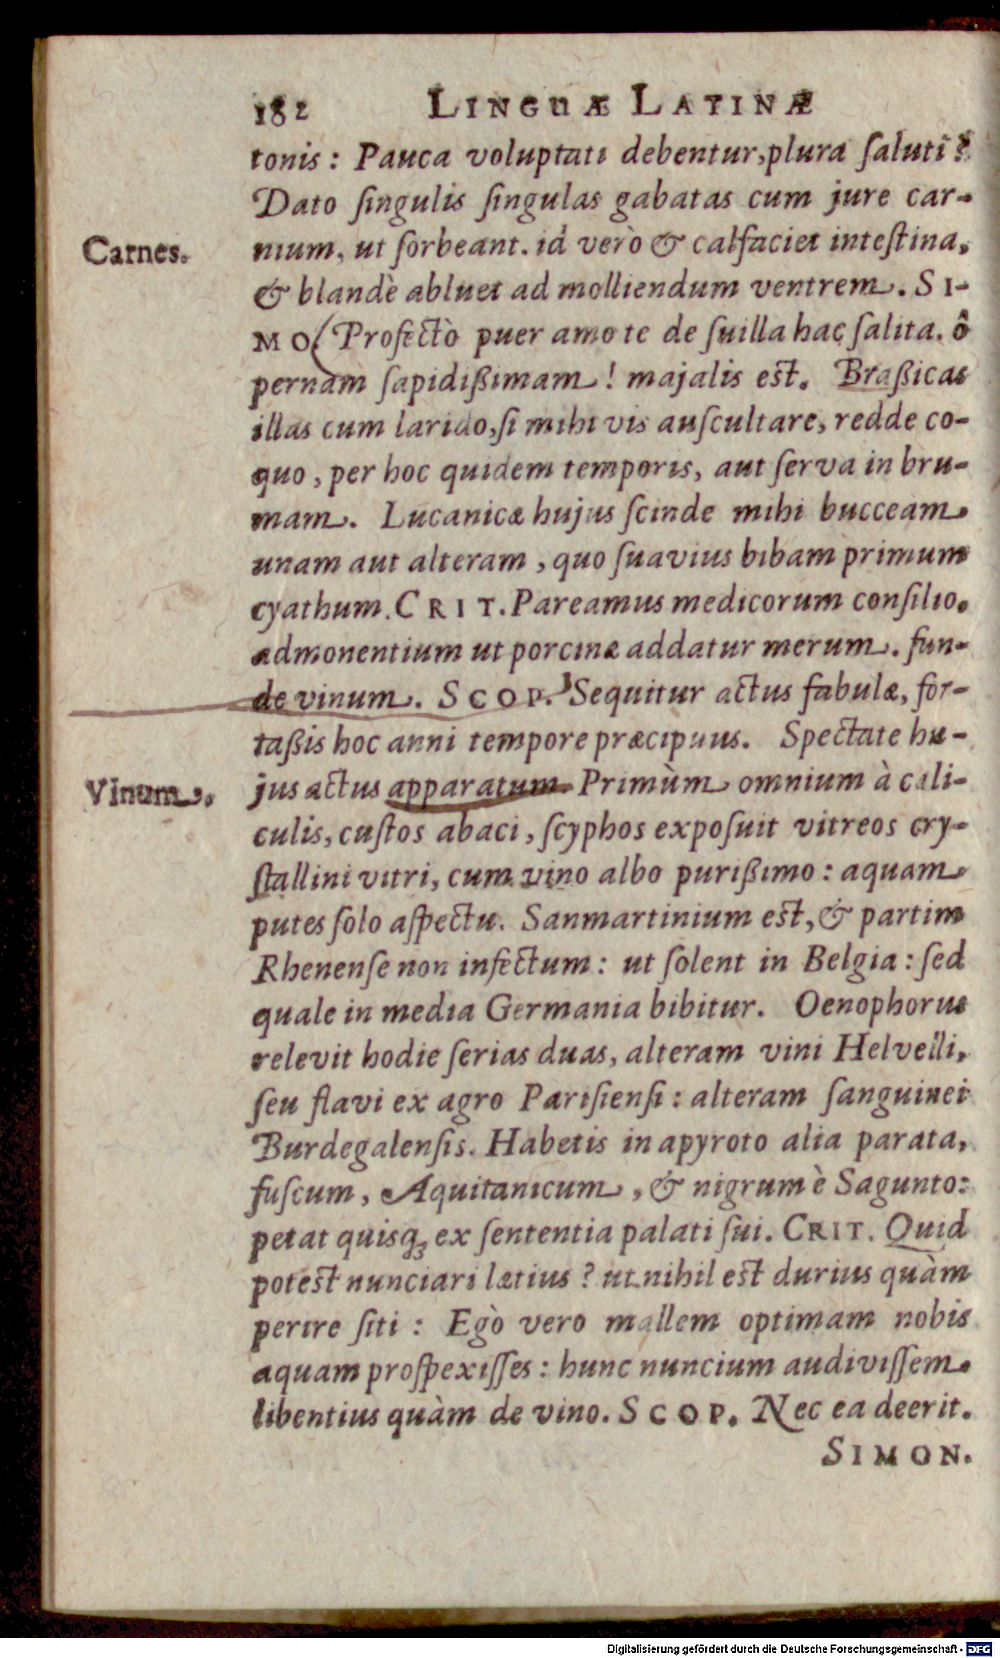 182 LINGUÆ LATINÆ
tonis : Pauca voluptati debentur, plura ſaluti ?
Dato ſingulis ſingulas gabatas cum jure car-
Carnes.
nium, ut ſorbeant. id verò & calfaciet inteſtina,
& blandè abluet ad molliendum ventrem. SI-
MO. Profectò puer amo te de ſuilla hac ſalita. ô
pernam ſapidißimam ! majalis eſt. Braßicas
illas cum larido, ſi mihi vis auſcultare, redde co-
quo, per hoc quidem temporis, aut ſerva in bru-
mam. Lucanicæ hujus ſcinde mihi bucceam
unam aut alteram, quo ſuavius bibam primum
cyathum. CRIT. Pareamus medicorum conſilio,
admonentium ut porcinæ addatur merum. fun-
de vinum. SCOP. Sequitur actus fabulæ, for-
taßis hoc anni tempore præcipuus. Spectate hu-
Vinum.
jus actus apparatum. Primùm omnium à cali-
culis, cuſtos abaci, ſcyphos expoſuit vitreos cry-
ſtallini vitri, cum vino albo purißimo : aquam
putes ſolo aſpectu. Sanmartinium eſt, & partim
Rhenenſe non infectum : ut ſolent in Belgia : ſed
quale in media Germania bibitur. Oenophorus
relevit hodie ſerias duas, alteram vini Helvelli,
ſeu flavi ex agro Pariſienſi : alteram ſanguinei
Burdegalenſis. Habetis in apyroto alia parata,
fuſcum, Aquitanicum, & nigrum è Sagunto :
petat quisq; ex ſententia palati ſui. CRIT. Quid
poteſt nunciari lætius ? ut nihil eſt durius quàm
perire ſiti : Egò vero mallem optimam nobis
aquam proſpexiſſes : hunc nuncium audiviſſem
libentius quàm de vino. SCOP. Nec ea deerit.
SIMON.
Digitalisierung gefördert durch die Deutsche Forschungsgemeinschaft - DFG